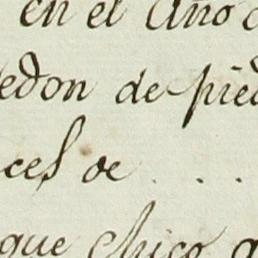 en el Año
edon de pied
ces de . . .
que chico